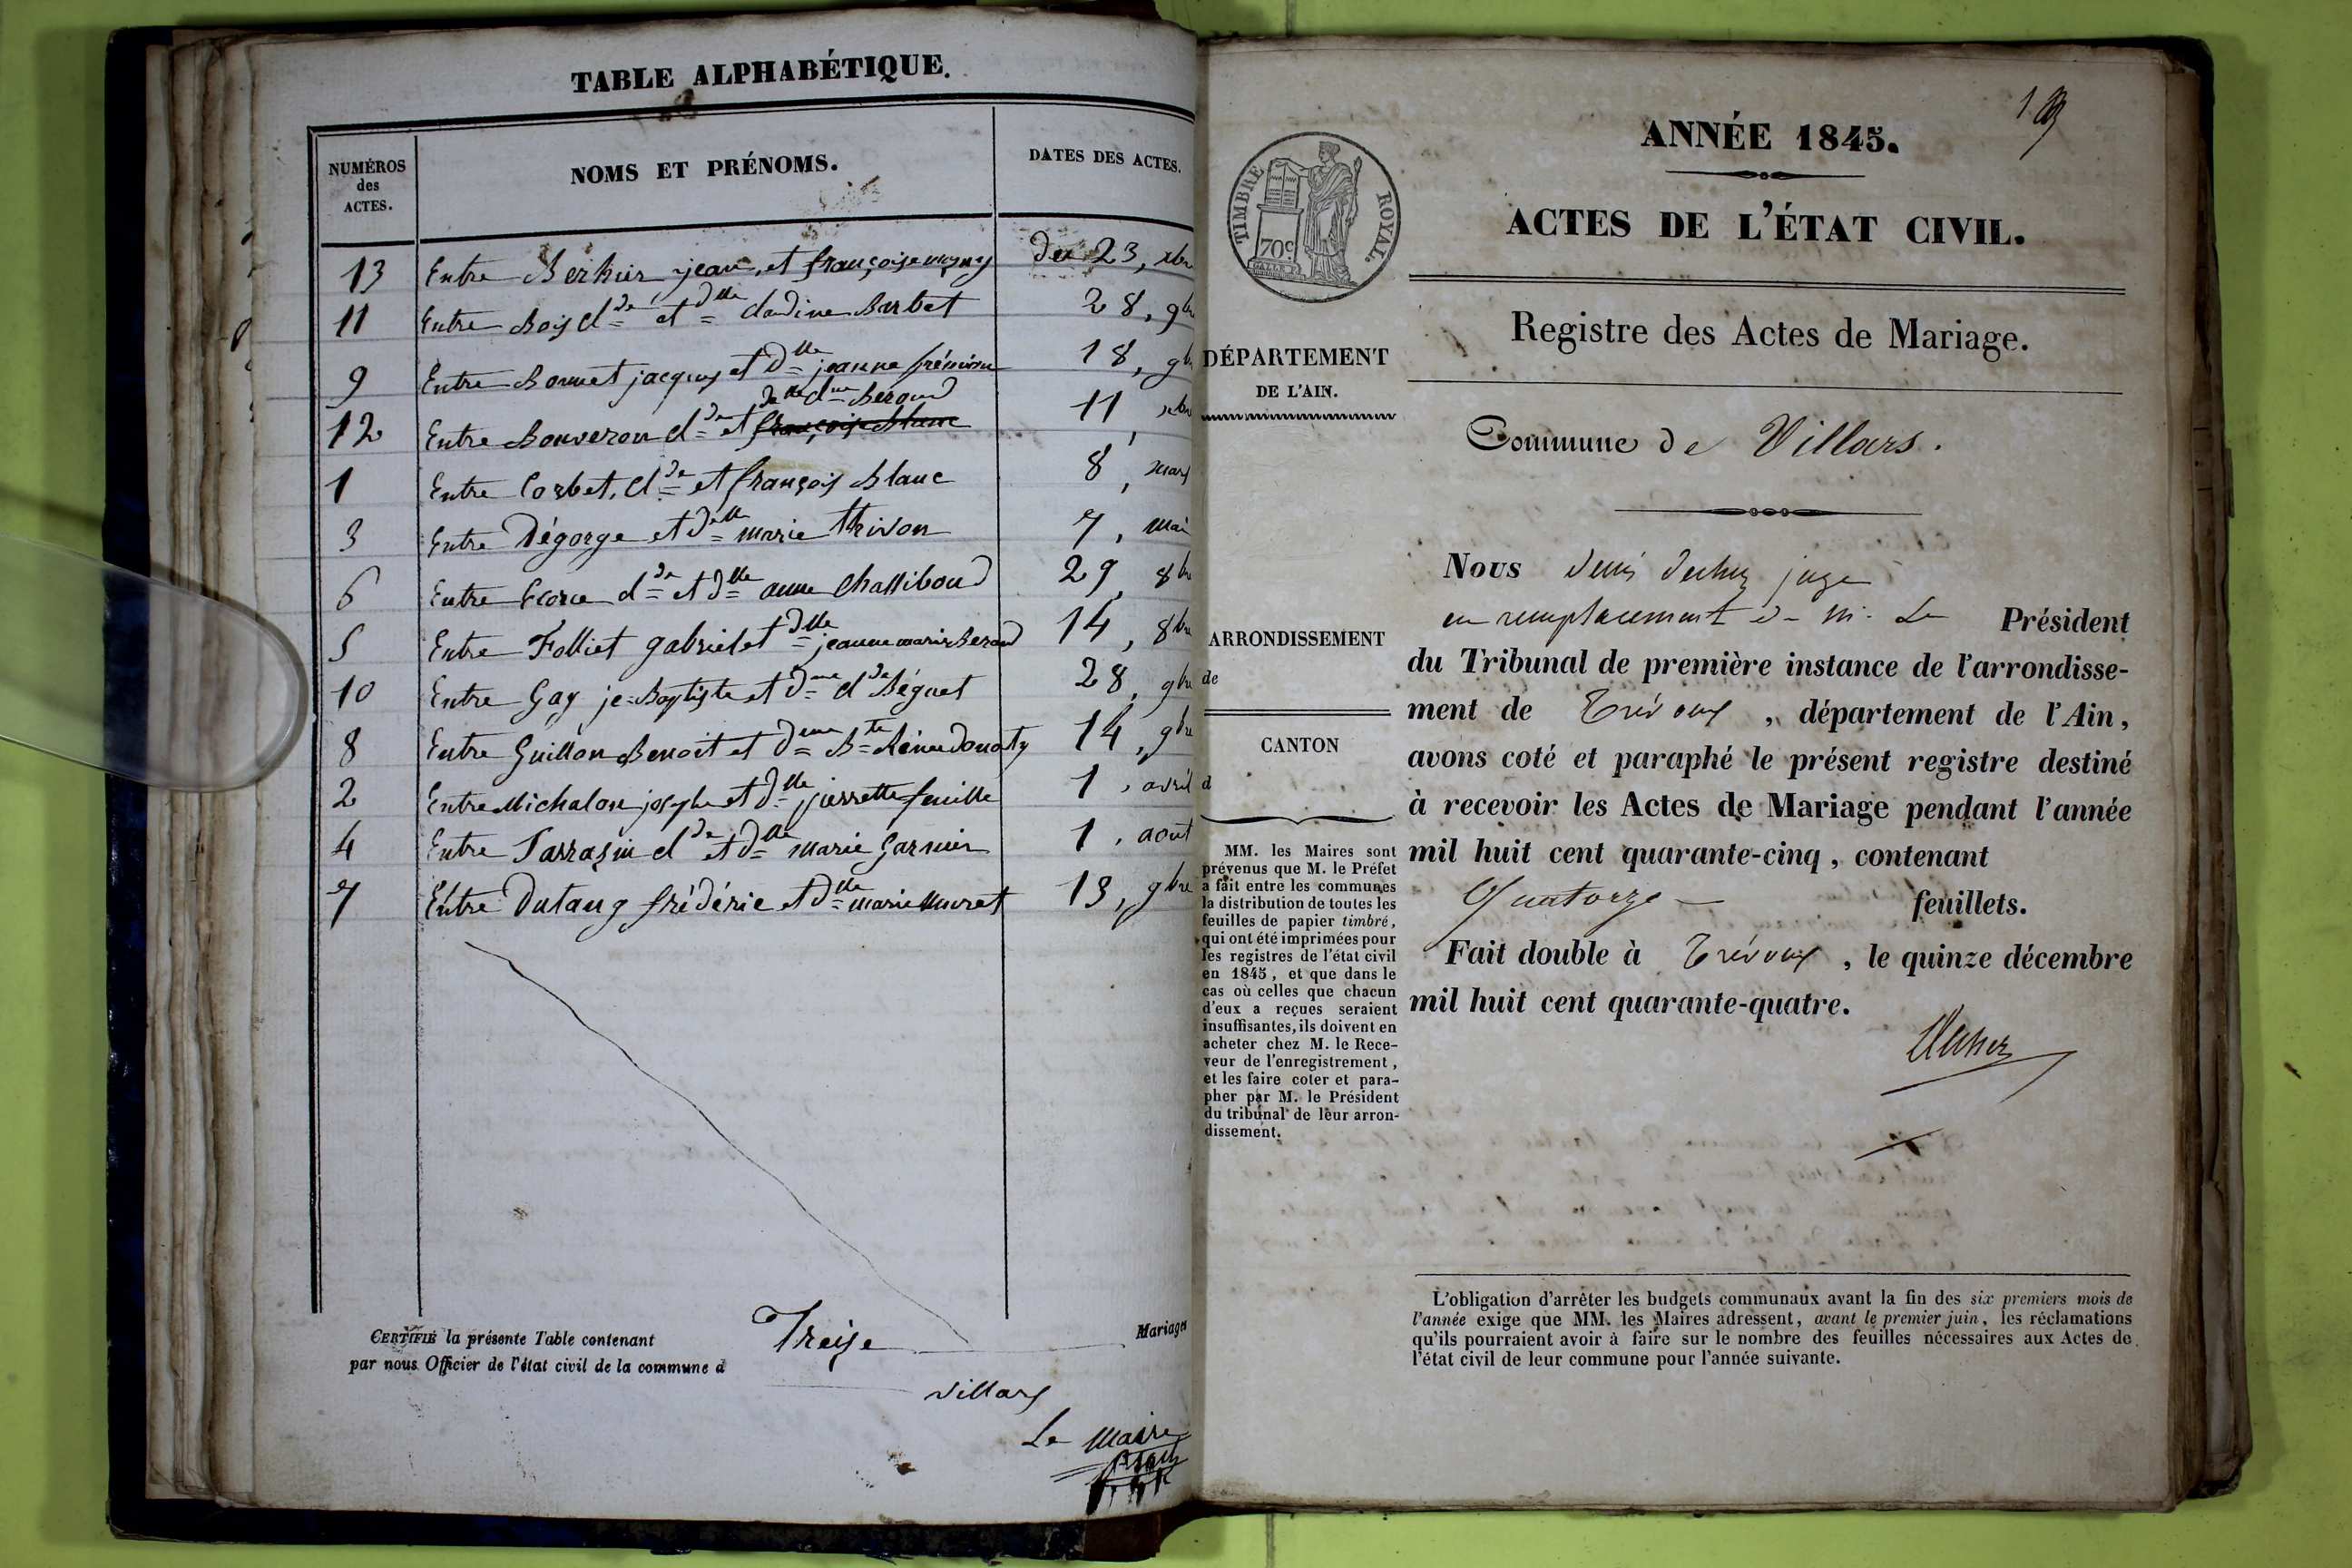 TABLE ALPHABÉTIQUE.
NUMÉROS
des
ACTES.
NOMS ET PRÉNOMS.
DATES DES ACTES.
13 Entre jean, et françoise du 23, xbre
11 Entre Bois cl de et dlle claudine Barbet 28, gbre
9 Entre Bonnet jacques et dlle jeanne 18, gbre
dlle Béroud
12 Entre Bouveron cl de et françoise Blanc 11, xbre
1 Entre Corbet, cl de et françois Blanc 8, mars
3 Entre Dégorge et dlle marie thivon 7, mai
6 Entre cl de et dlle anne Chassiboud 29, 8bre
5 Entre Folliet gabriel et dlle jeanne marie Beroud 14, 8bre
10 Entre Gay je=Baptiste et dme cl de Béguet 28, gbre
8 Entre Guillon Benoit et dme Bte 14, gbre
2 Entre Michalon josephe et dlle pierrette feuille 1, avril
4 Entre Sarrasin cl de et dlle marie Garnier 1, aout
7 Entre Dutang frédéric et dlle marie Muret 13, gbre
CERTIFIÉ la présente Table contenant Treize Mariages
par nous Officier de l'état civil de la commune d villars
Le Maire
ANNÉE 1845.
ACTES DE L'ÉTAT CIVIL.
TIMBRE ROYAL.
70c
Registre des Actes de Mariage.
DÉPARTEMENT
DE L'AIN.
Commune de Villars.
ARRONDISSEMENT
de
CANTON
d
MM. les Maires sont
prévenus que M. le Préfet
a fait entre les communes
la distribution de toutes les
feuilles de papier timbré,
qui ont été imprimées pour
les registres de l'état civil
en 1845, et que dans le
cas où celles que chacun
d'eux a reçues seraient
insuffisantes, ils doivent en
acheter chez M. le Rece-
veur de l'enregistrement,
et les faire coter et para-
pher par M. le Président
du tribunal de leur arron-
dissement.
Nous Denis juge
en remplacement de M. Le Président
du Tribunal de première instance de l'arrondisse-
ment de Trévoux, département de l'Ain,
avons coté et paraphé le présent registre destiné
à recevoir les Actes de Mariage pendant l'année
mil huit cent quarante-cinq, contenant
Quatorze feuillets.
Fait double à Trévoux, le quinze décembre
mil huit cent quarante-quatre.
L'obligation d'arrêter les budgets communaux avant la fin des six premiers mois de
l'année exige que MM. les Maires adressent, avant le premier juin, les réclamations
qu'ils pourraient avoir à faire sur le nombre des feuilles nécessaires aux Actes de
l'état civil de leur commune pour l'année suivante.